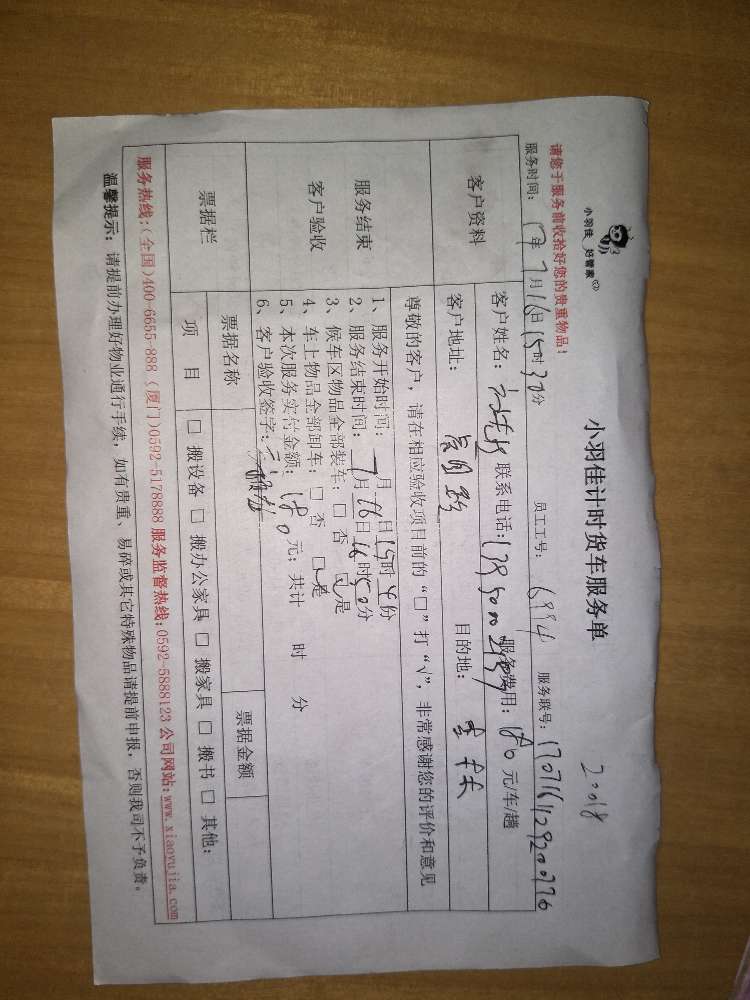 小羽佳 好管家
小羽佳计时货车服务单
2018
请您于服务前收拾好您的贵重物品!
服务时间: 17年7月16日15时30分 员工工号: 6994 服务联号: 170716112920076
客户资料
客户姓名: 联系电话: 服务费用: 180元/车/趟
客户地址: 目的地:
服务结束
客户验收
尊敬的客户,请在相应验收项目前的“□”打“√”,非常感谢您的评价和意见
1、服务开始时间: 7月16日15时 份
2、服务结束时间: 7月16日16时50分
3、候车区物品全部装车: □ 否 ☑ 是
4、车上物品全部卸车: □ 否 ☑ 是
5、本次服务实付金额: 180元; 共计 时 分
6、客户验收签字:
票据栏
票据名称 票据金额
项 目
□ 搬设备 □ 搬办公家具 □ 搬家具 □ 搬书 □ 其他:
服务热线:(全国)400-6655-888 (厦门)0592-5178888 服务监督热线:0592-5888123 公司网站:www.xiaoyujia.com
温馨提示: 请提前办理好物业通行手续, 如有贵重、易碎或其它特殊物品请提前申报, 否则我司不予负责。